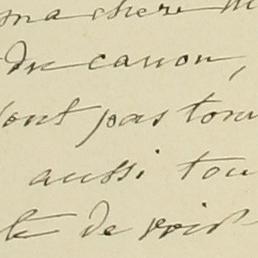 ma chère m
du canon,
ont pas tou
aussi tou
te de